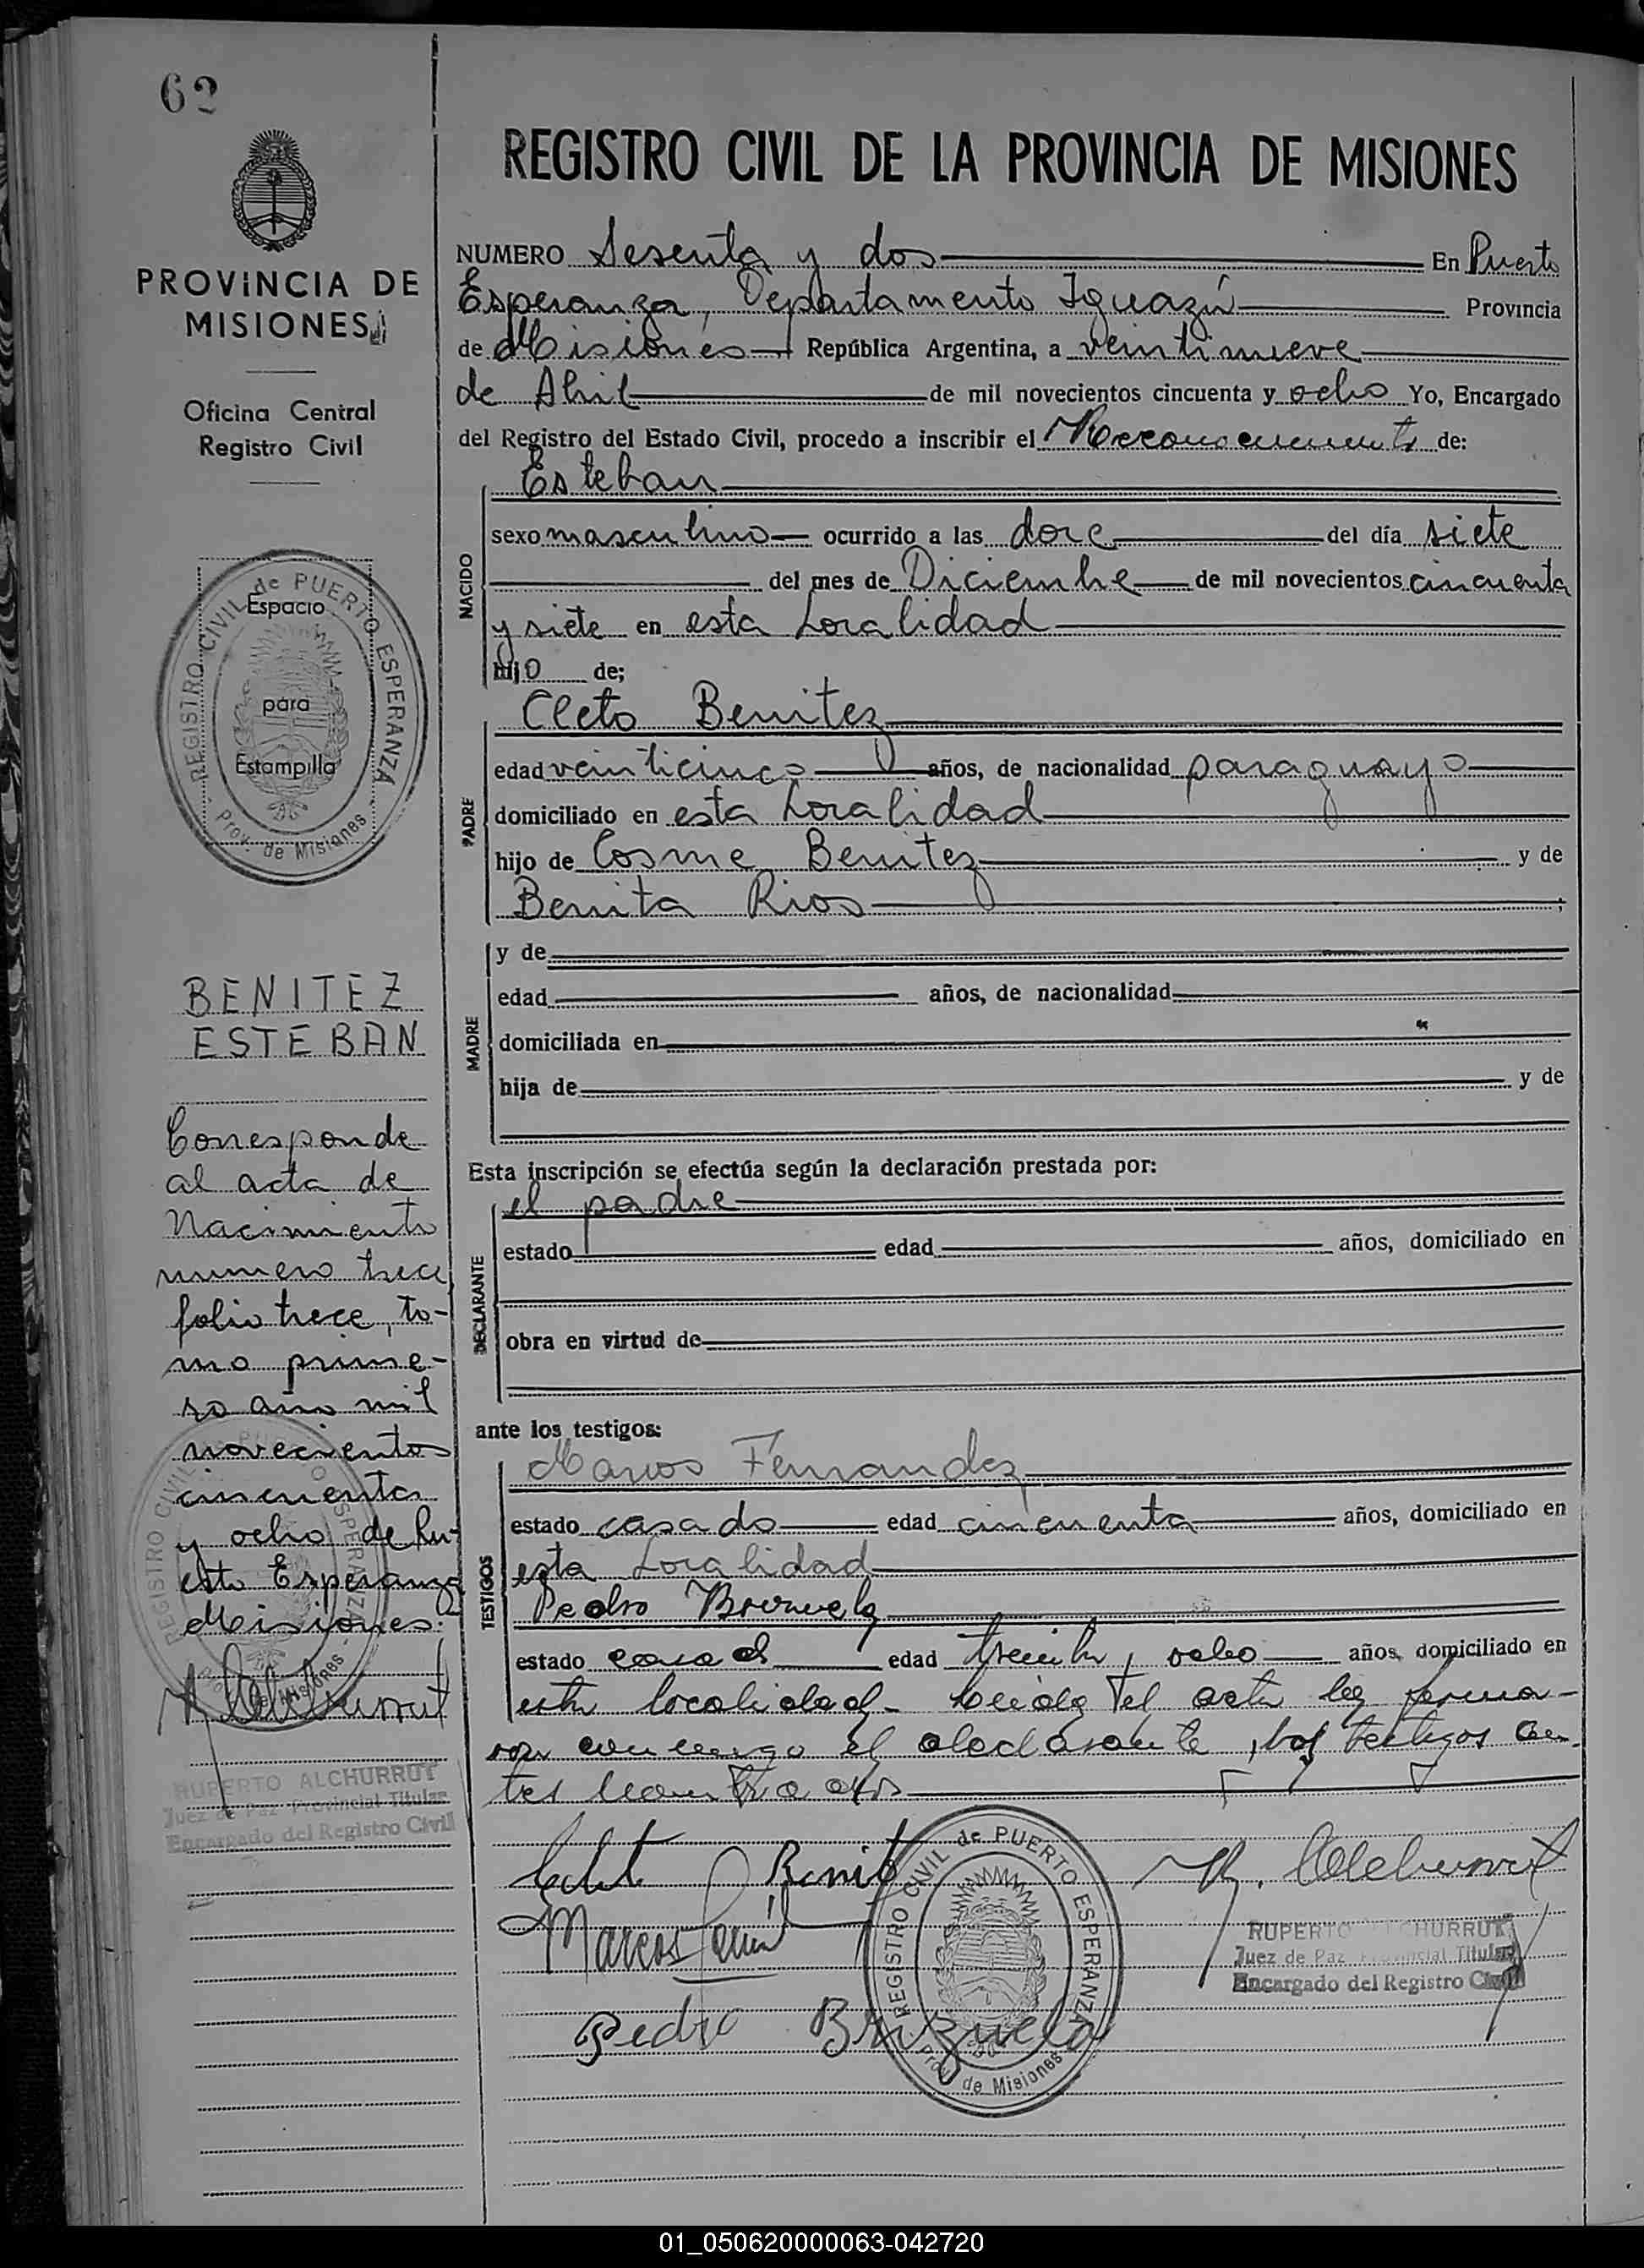 62
PROVINCIA DE
MISIONES
Oficina Central
Registro Civil
REGISTRO CIVIL de PUERTO ESPERANZA
Prov. de Misiones
Espacio
para
Estampilla
BENITEZ
ESTEBAN
Corresponde
al acta de
Nacimiento
numero trece
folio trece, to-
mo prime-
ro año mil
novecientos
cincuenta
y ocho de Pu-
erto Esperanza
Misiones.
RUPERTO ALCHURRUT
Juez de Paz Provincial Titular
Encargado del Registro Civil
REGISTRO CIVIL DE LA PROVINCIA DE MISIONES
NUMERO Sesenta y dos En Puerto
Esperanza, Departamento Iguazú Provincia
de Misiones República Argentina, a veintinueve
de Abril de mil novecientos cincuenta y ocho Yo, Encargado
del Registro del Estado Civil, procedo a inscribir el Reconocimiento de:
NACIDO
Esteban
sexo masculino ocurrido a las doce del día siete
del mes de Diciembre de mil novecientos cincuenta
y siete en esta Localidad
hijo de;
PADRE
Cleto Benitez
edad veinticinco años, de nacionalidad paraguayo
domiciliado en esta Localidad
hijo de Cosme Benitez y de
Benita Rios ;
MADRE
y de
edad años, de nacionalidad
domiciliada en
hija de y de
Esta inscripción se efectúa según la declaración prestada por:
DECLARANTE
el padre
estado edad años, domiciliado en
obra en virtud de
ante los testigos:
TESTIGOS
Marcos Fernandez
estado casado edad cincuenta años, domiciliado en
esta Localidad
Pedro Brizuela
estado casado edad treinta y ocho años, domiciliado en
esta localidad - Leida el acta la firma-
ron conmigo el declarante y los testigos an-
tes nombrados
Cleto Benitez
R. Alchurrut
Marcos
RUPERTO ALCHURRUT
Juez de Paz Provincial Titular
Encargado del Registro Civil
Pedro Brizuela
REGISTRO CIVIL de PUERTO ESPERANZA
Prov. de Misiones
01_050620000063-042720